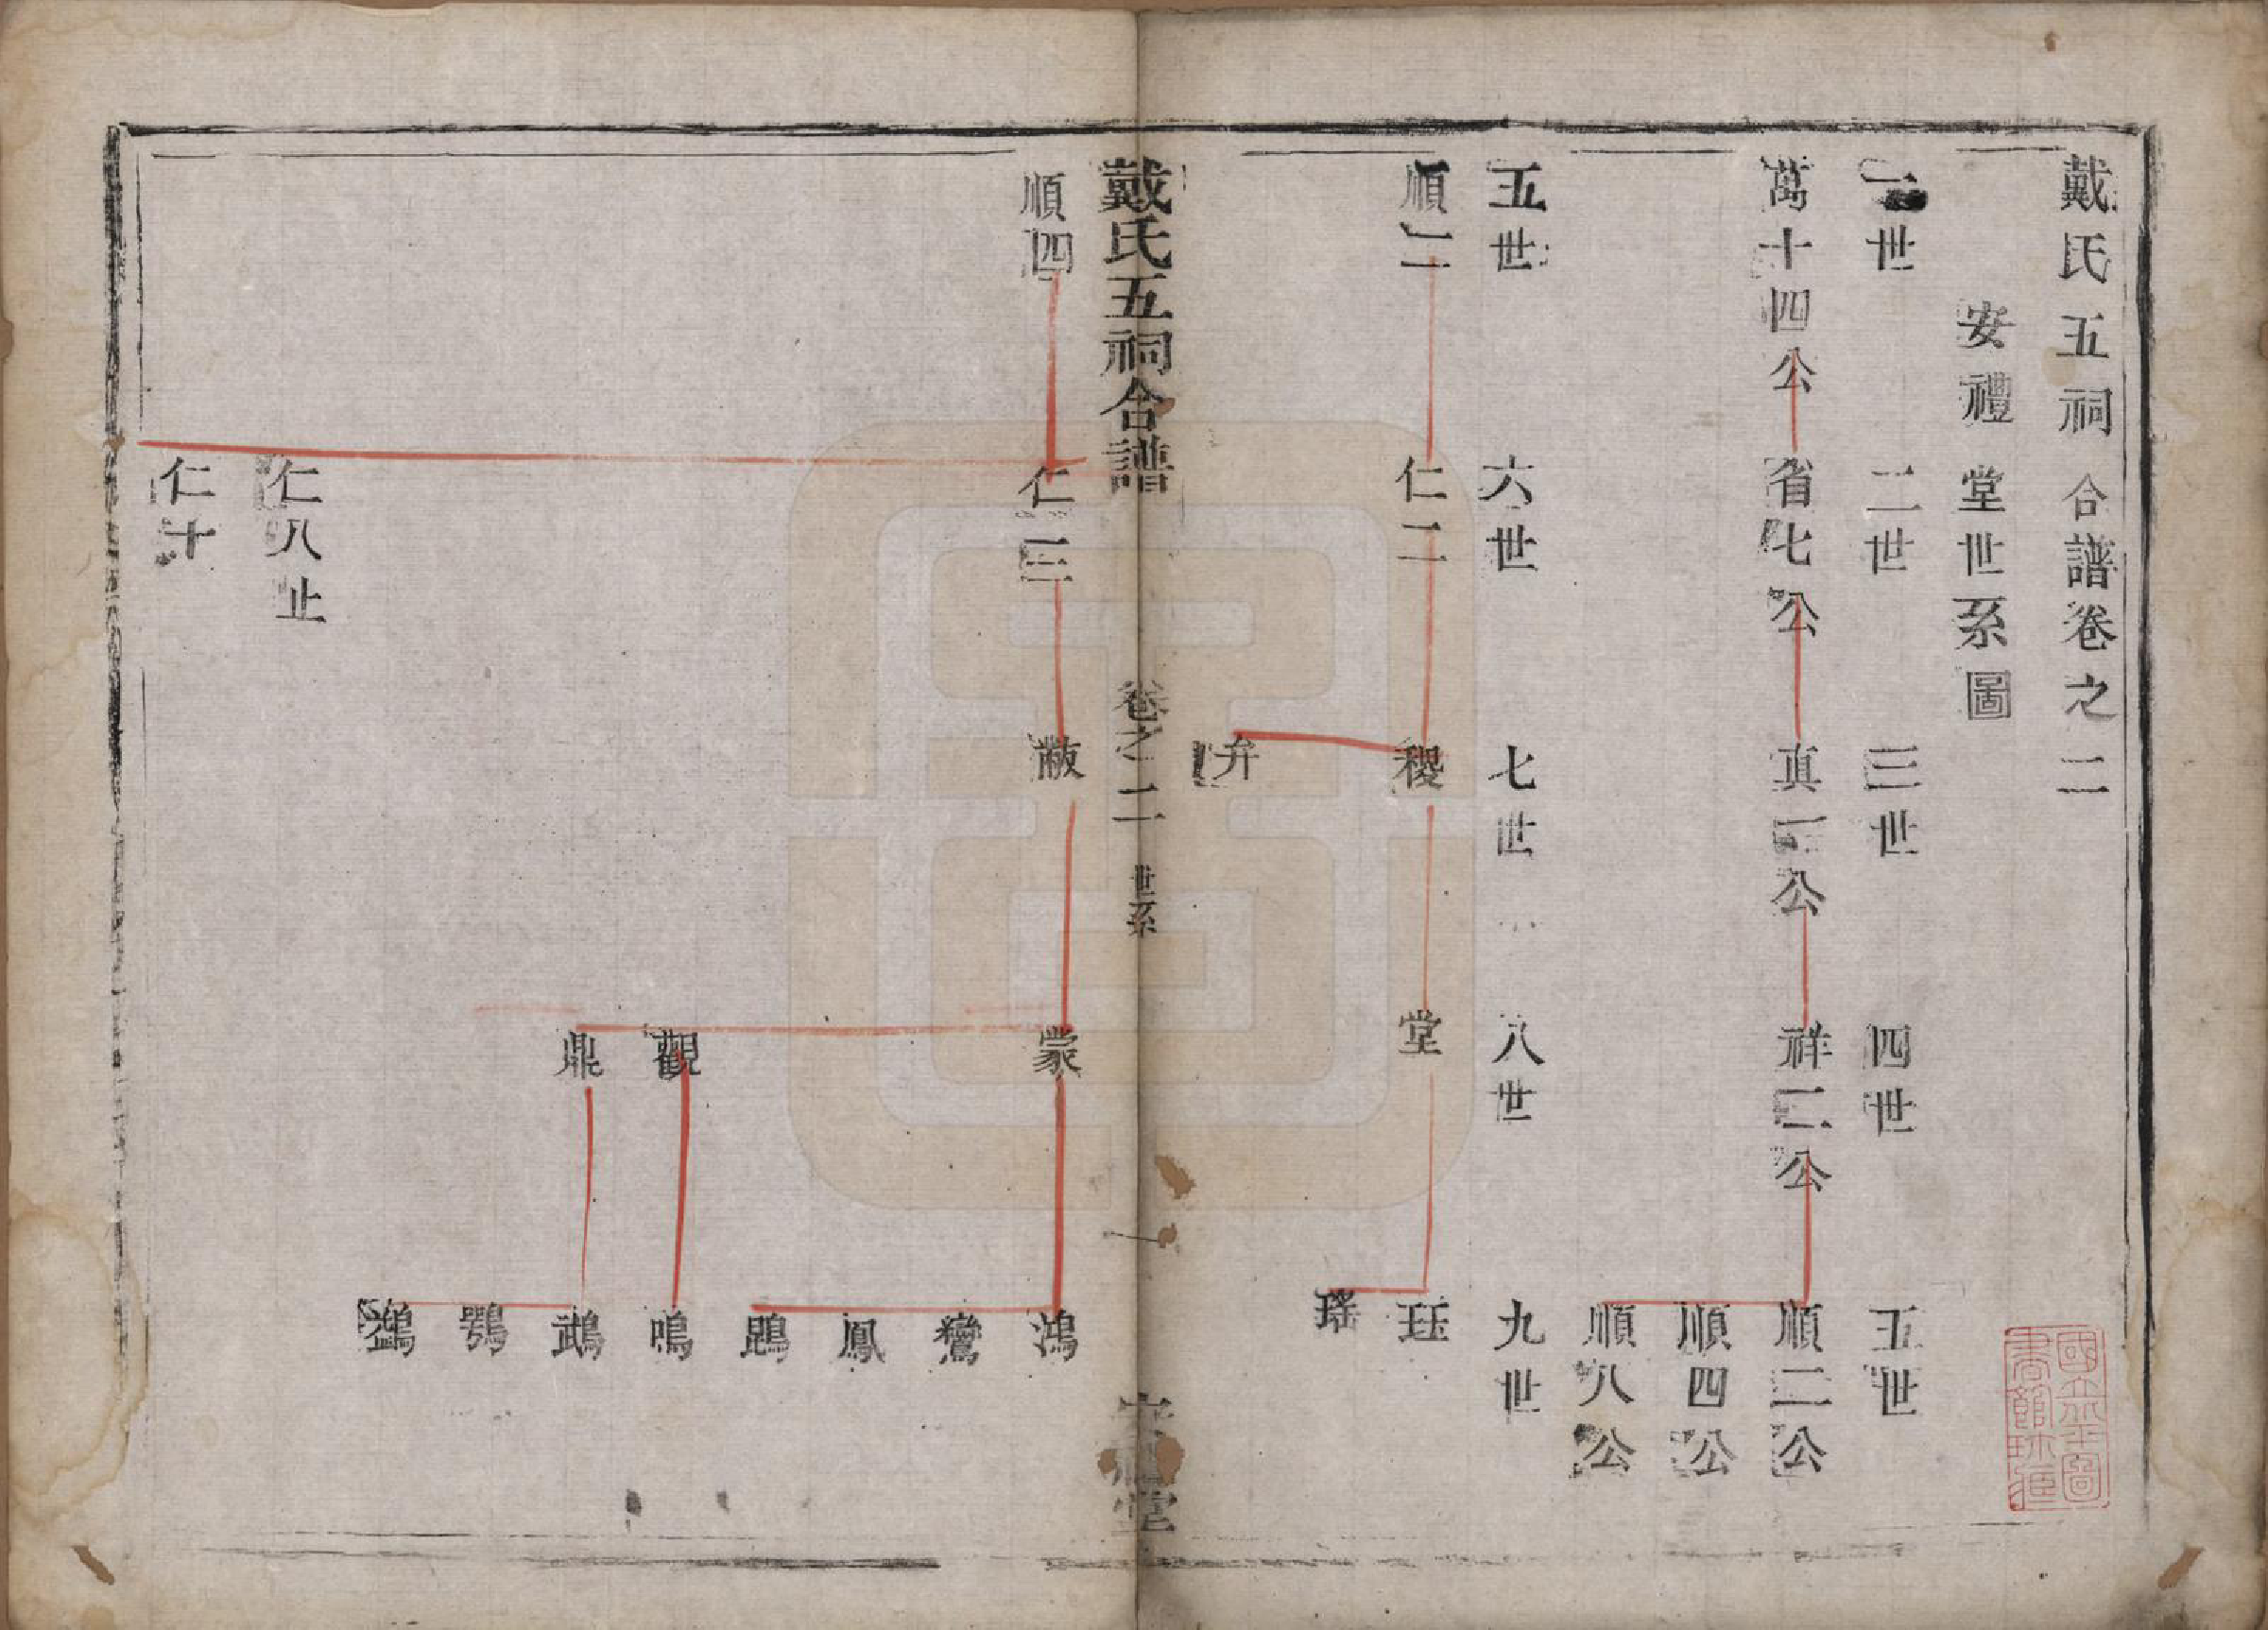 戴氏五祠合譜卷之二
安禮堂世系圖
一世 二世 三世 四世 五世
萬十四公 省七公 真一公 祥二公 順二公
順四公
順八公
五世 六世 七世 八世 九世
順二 仁二 稷 堂 珏
瑤
弁
戴氏五祠合譜 卷之二 世系 一 安禮堂
順四 仁三 黻 蒙 鴻
鸞
鳳
鵾
觀 鳴
鼎 鵡
鶚
仁八止
仁十
國立北平圖書館珍藏